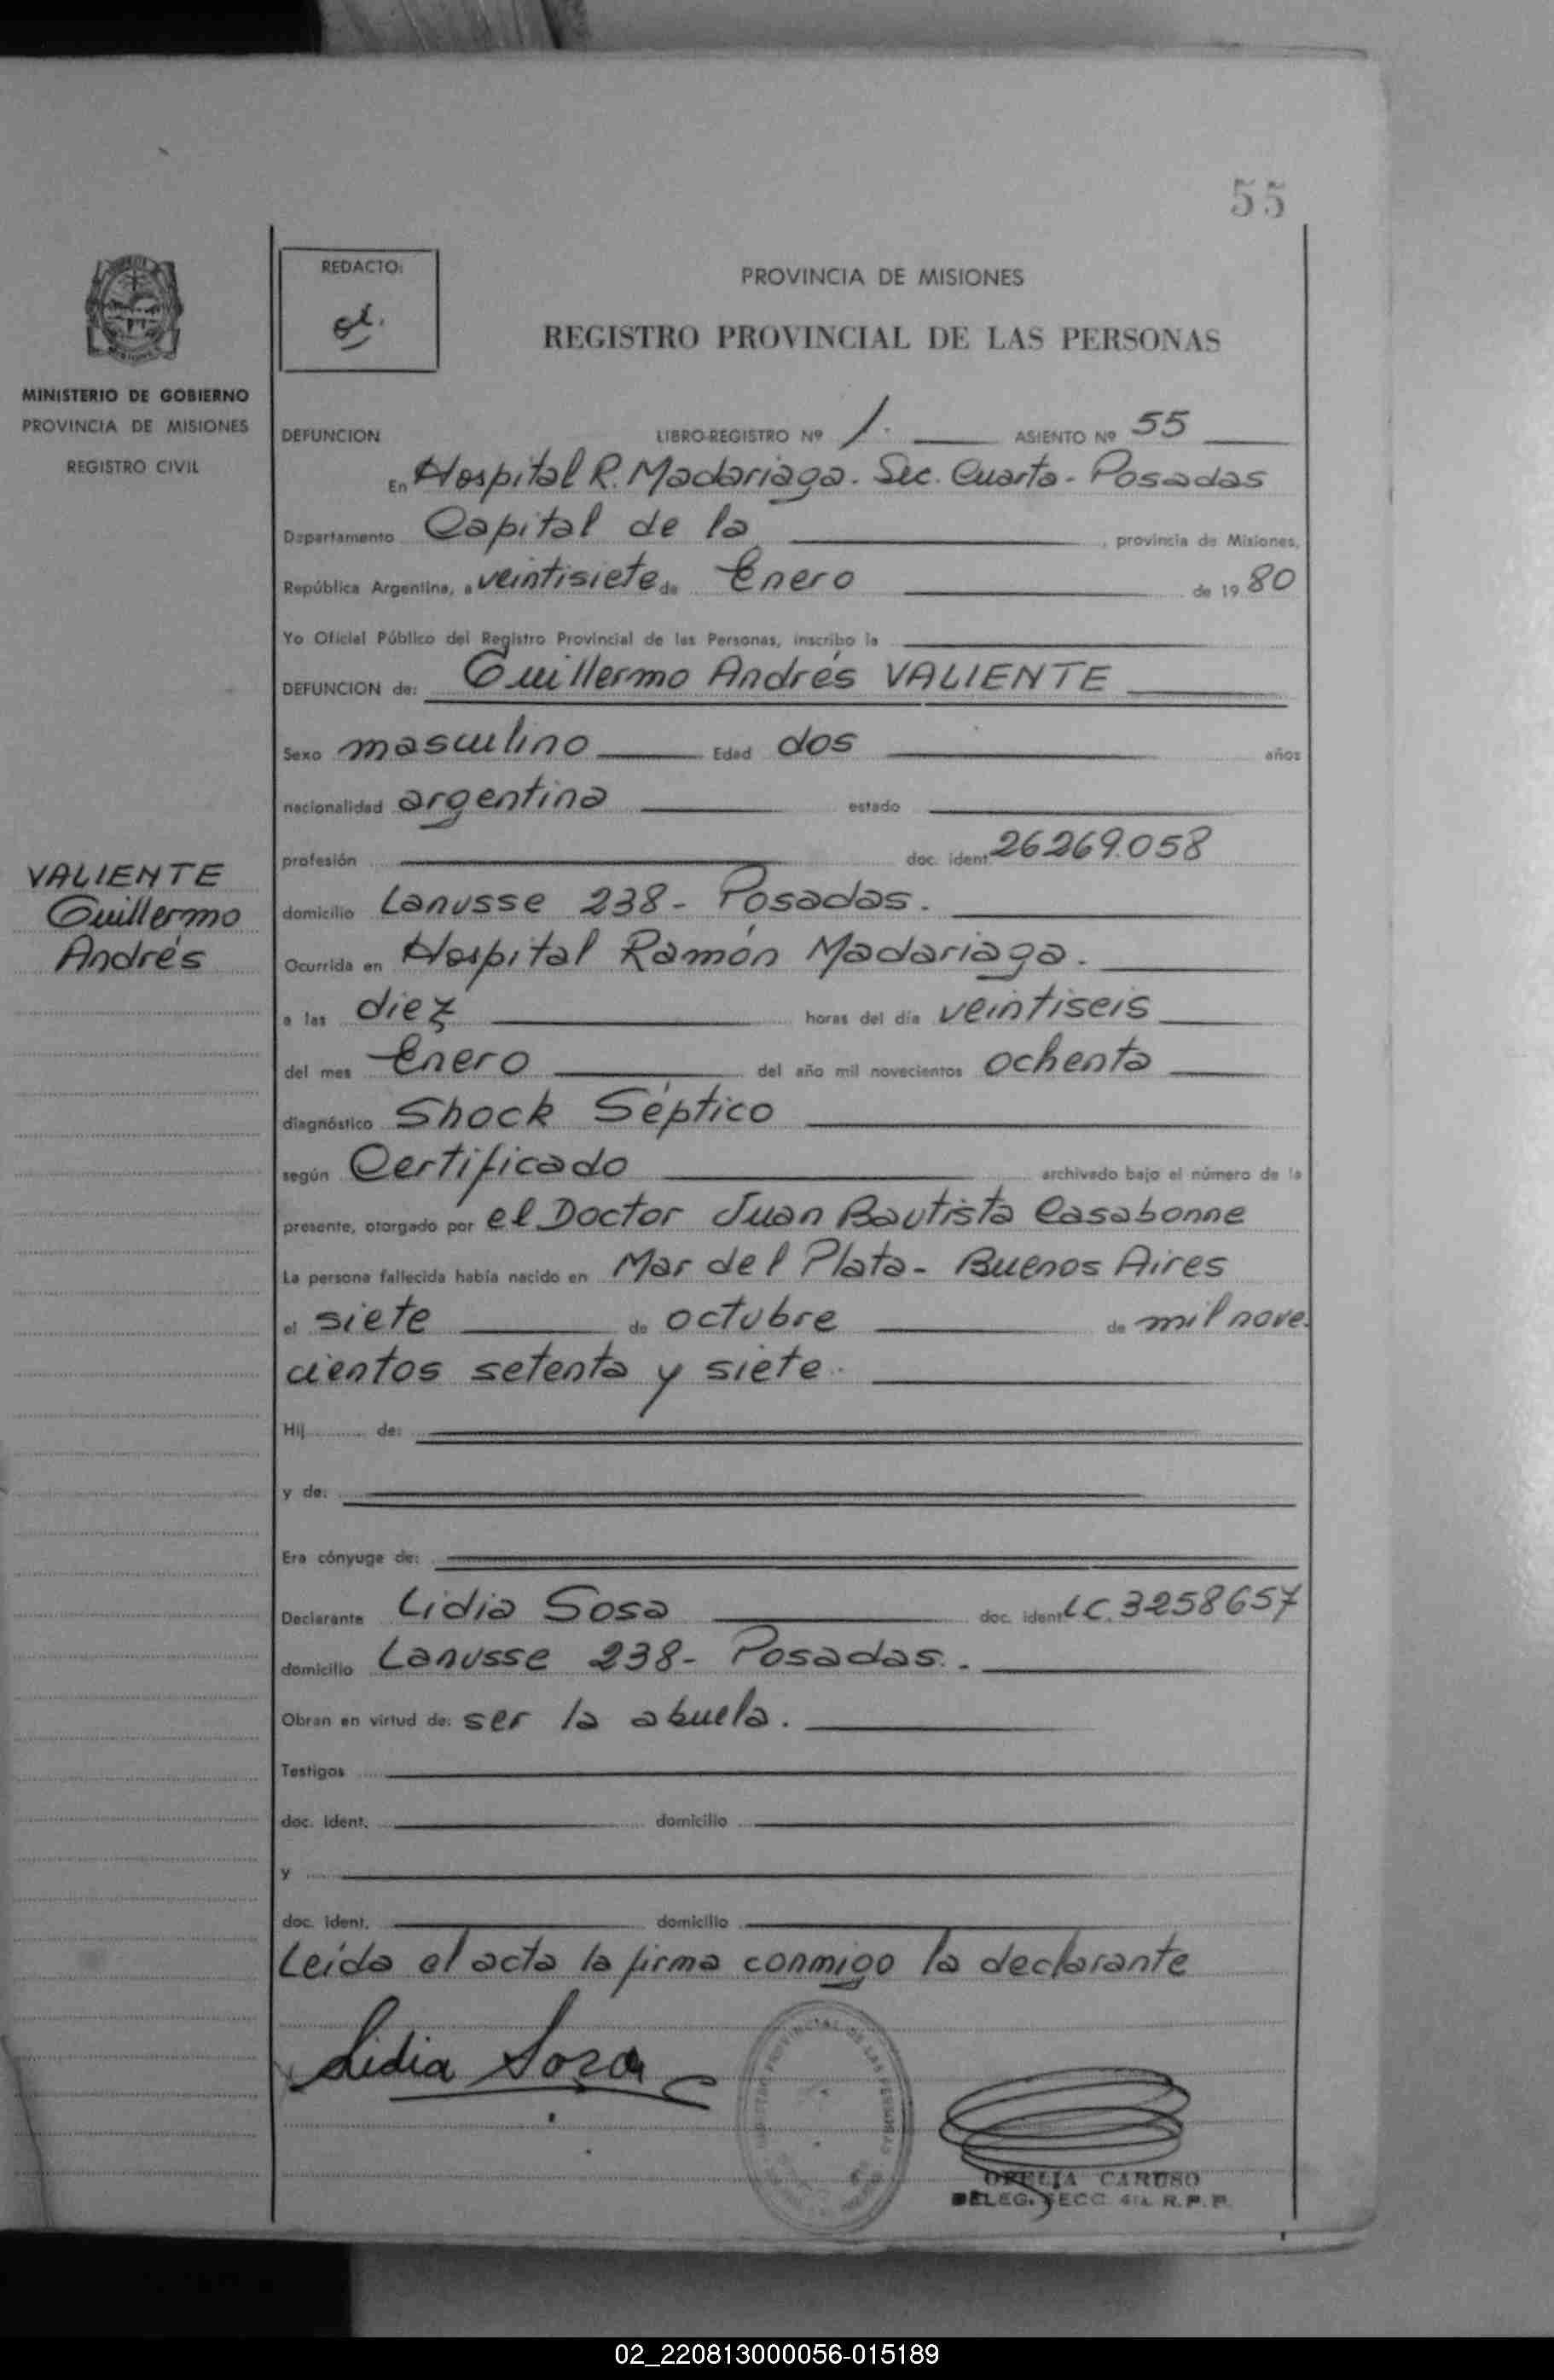 55
REDACTO:
PROVINCIA DE MISIONES
REGISTRO PROVINCIAL DE LAS PERSONAS
MINISTERIO DE GOBIERNO
PROVINCIA DE MISIONES
REGISTRO CIVIL
DEFUNCION LIBRO-REGISTRO Nº 1. ASIENTO Nº 55
En Hospital R. Madariaga. Sec. Cuarta - Posadas
Departamento Capital de la , provincia de Misiones,
República Argentina, a veintisiete de Enero de 19 80
Yo Oficial Público del Registro Provincial de las Personas, inscribo la
DEFUNCION de: Guillermo Andrés VALIENTE
Sexo masculino Edad dos años
nacionalidad argentina estado
profesión doc. ident. 26269.058
VALIENTE
Guillermo
Andrés
domicilio Lanusse 238 - Posadas.
Ocurrida en Hospital Ramón Madariaga.
a las diez horas del día veintiseis
del mes Enero del año mil novecientos ochenta
diagnóstico Shock Séptico
según Certificado archivado bajo el número de la
presente, otorgado por el Doctor Juan Bautista Casabonne
La persona fallecida había nacido en Mar del Plata - Buenos Aires
el siete de octubre de mil nove.
cientos setenta y siete.
Hij de:
y de:
Era cónyuge de:
Declarante Lidia Sosa doc. ident. LC. 3258657
domicilio Lanusse 238 - Posadas.
Obran en virtud de: ser la abuela.
Testigos
doc. ident. domicilio
y
doc. ident. domicilio
Leída el acta la firma conmigo la declarante
Lidia Sosa
CARUSO
DELEG. SECC. 4ta. R.P.P.
02_220813000056-015189